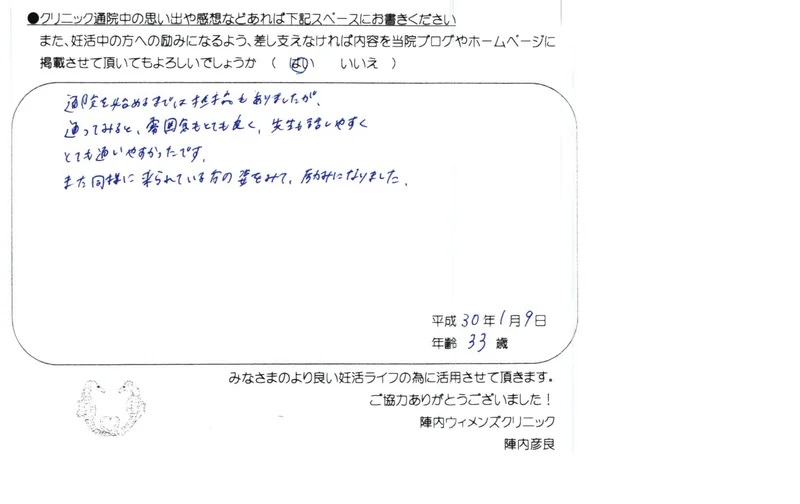 ●クリニック通院中の思い出や感想などあれば下記スペースにお書きください
また、妊活中の方への励みになるよう、差し支えなければ内容を当院ブログやホームページに
掲載させて頂いてもよろしいでしょうか （ はい いいえ ）
通院を始めるまでは抵抗もありましたが、
通ってみると、雰囲気もとても良く、先生も話しやすく
とても通いやすかったです。
また同様に来られている方の姿をみて、励みになりました。
平成 30 年 1 月 9 日
年齢 33 歳
みなさまのより良い妊活ライフの為に活用させて頂きます。
ご協力ありがとうございました！
陣内ウィメンズクリニック
陣内彦良